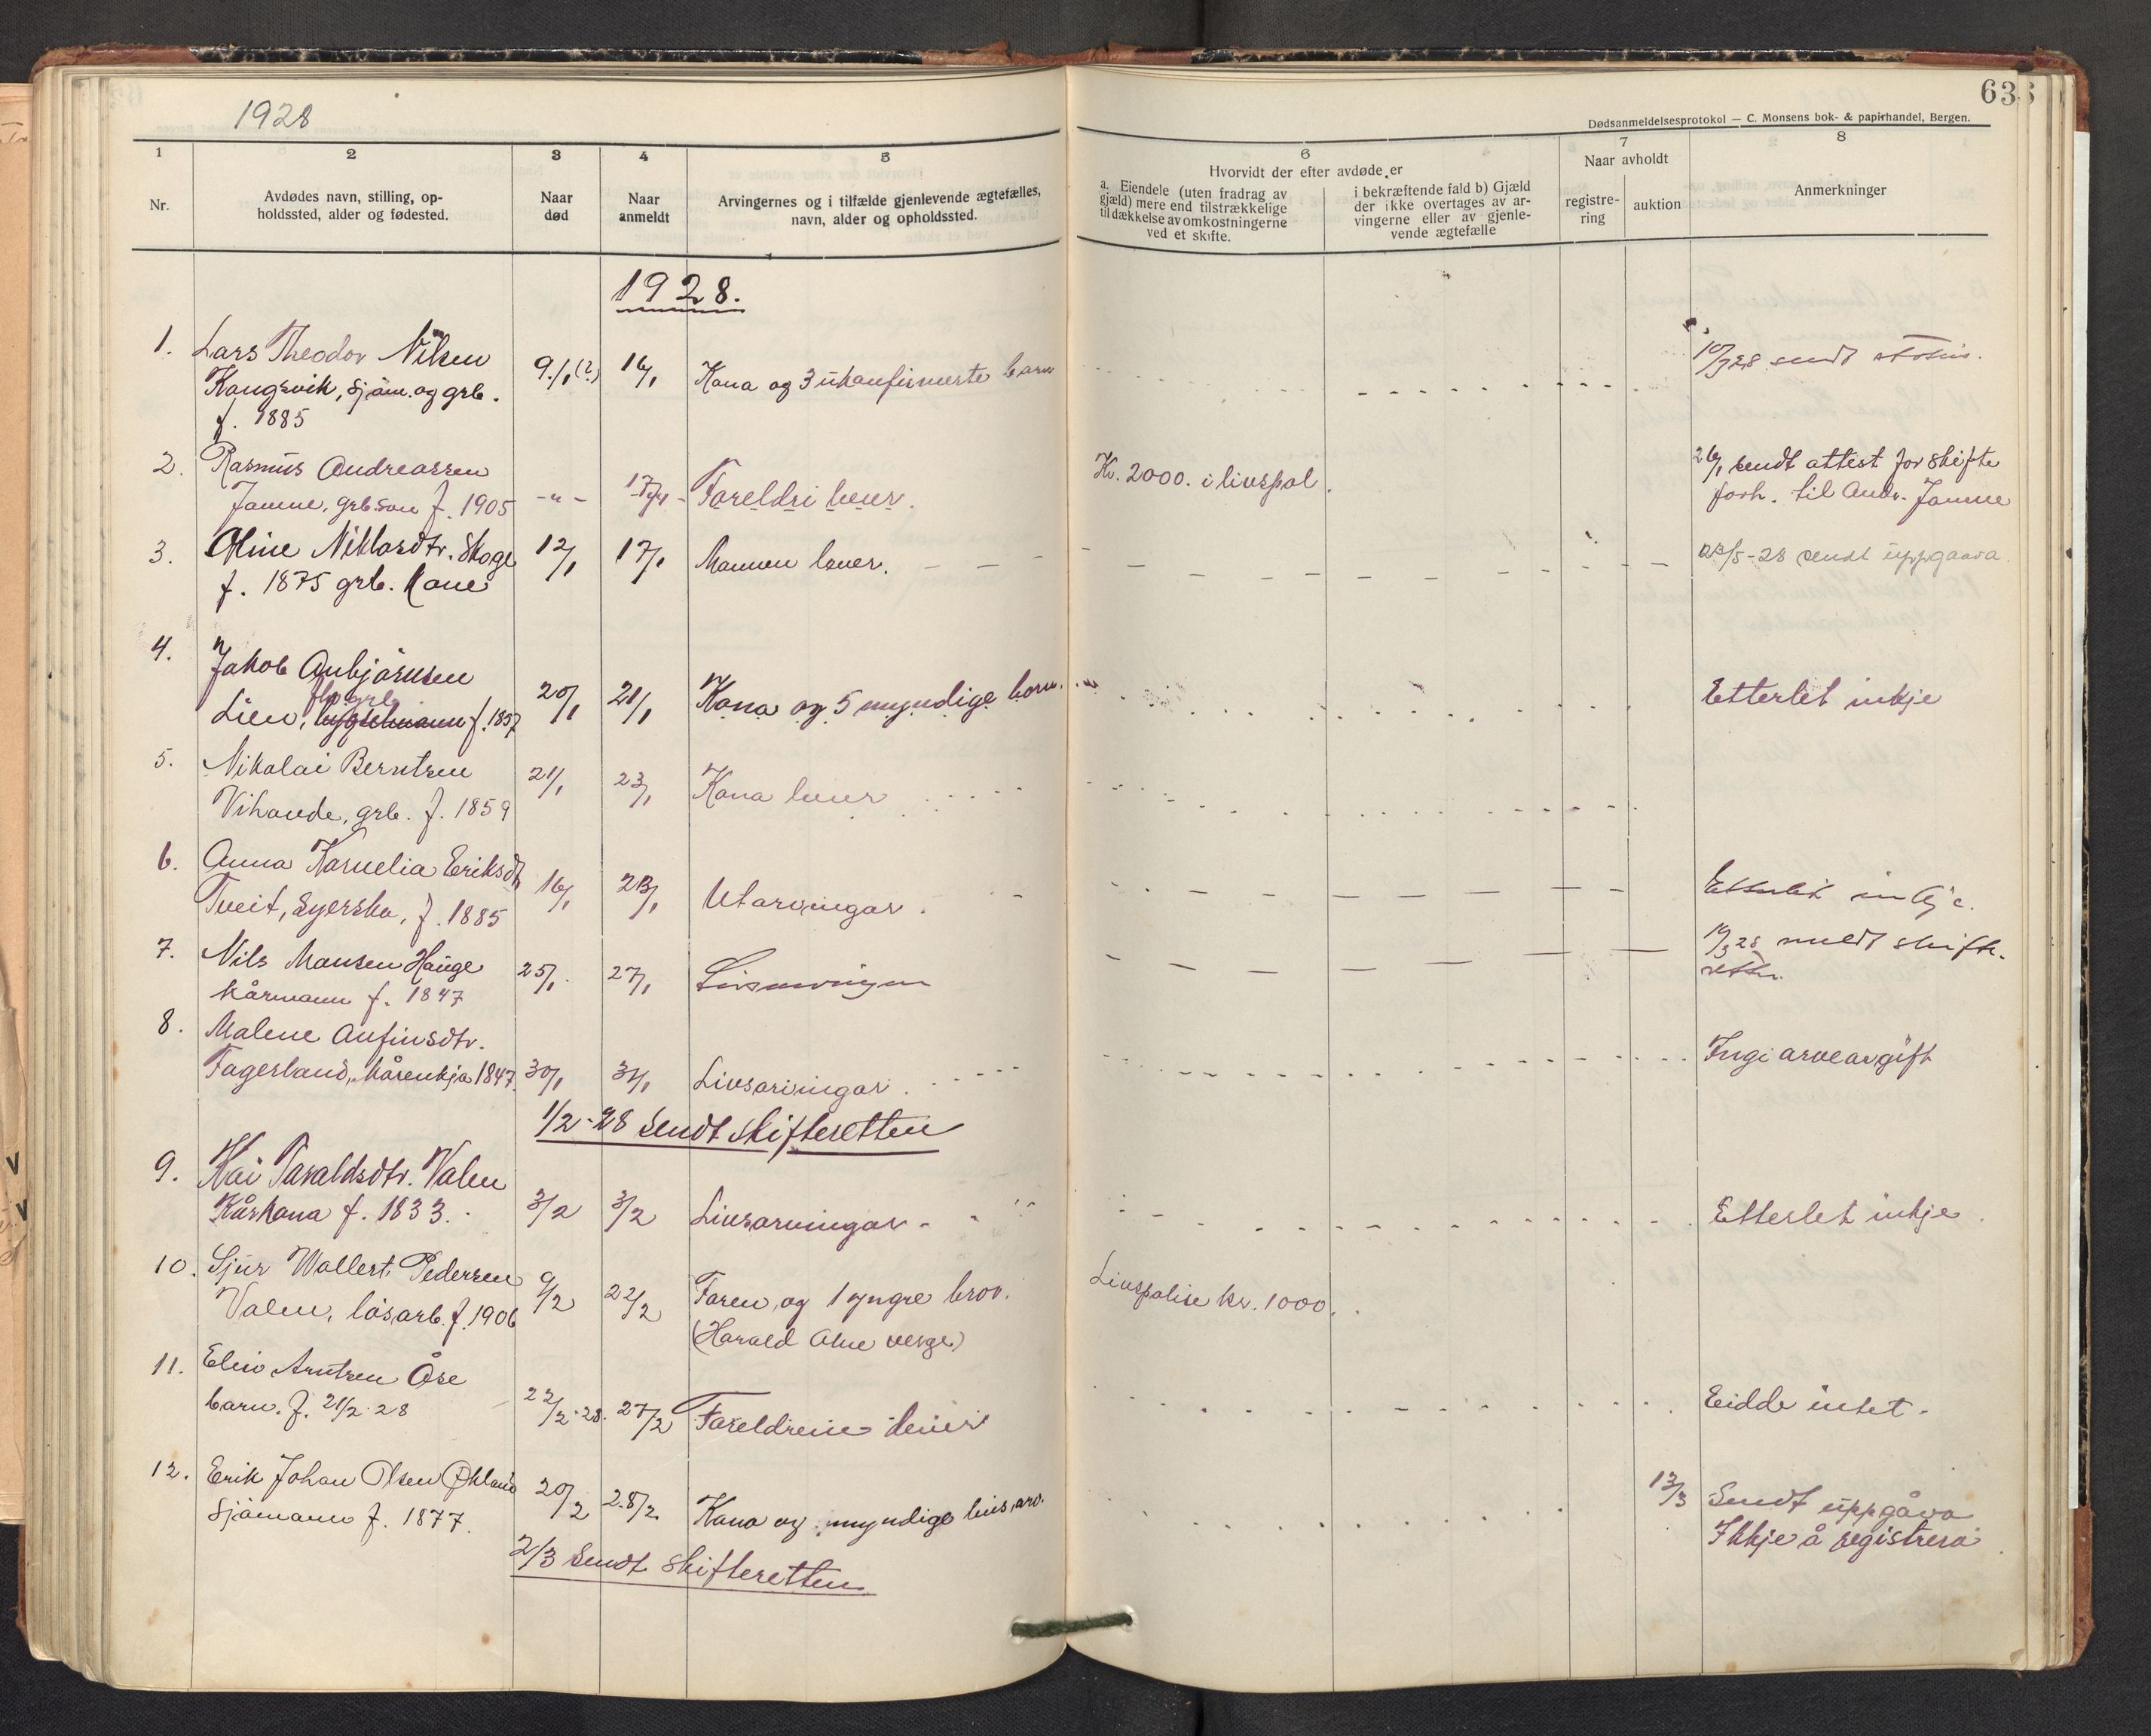 1928
63
Dødsanmeldelsesprotokol — C. Monsens bok- & papirhandel, Bergen.
1 2 3 4 5 6 7 8
Nr.
Avdødes navn, stilling, op-
holdssted, alder og fødested.
Naar
død
Naar
anmeldt
Arvingernes og i tilfælde gjenlevende ægtefælles,
navn, alder og opholdssted.
Hvorvidt der efter avdøde er
a. Eiendele (uten fradrag av
gjæld) mere end tilstrækkelige
til dækkelse av omkostningerne
ved et skifte.
i bekræftende fald b) Gjæld
der ikke overtages av ar-
vingerne eller av gjenle-
vende ægtefælle
Naar avholdt
registre-
ring
auktion
Anmerkninger
1928.
1. Lars Theodor Nilsen
Kongsvik, sjøm. og grb.
f. 1885
9./1 (?) 16/1 Kona og 3 ukonfirmerte barn
sendt
2. Rasmus Andreassen
Jamne, grb.son f. 1905 -"- 17/1 - Foreldri lever.
Kr. 2000. i livspol.
26/1 sendt attest for skifte
forh. til Andr. Jamne
3. Oline Niklasdtr. Skoge 12/1 17/1 Mannen lever.
f. 1875 grb. kone
sendt uppgaava
4. Jakob Anbjørnsen
Lien, f. 1857 20/1 21/1 Kona og 5 myndige born.
Etterlet inkje
5. Nikolai Berntsen
Vihovde, grb. f. 1859 21/1 23/1 Kona lever
6. Anna Kornelia Eriksdt
Tveit, syerska, f. 1885 16/1 23/1 Utarvingar.
Etterlet inkje.
7. Nils Monsen Hauge
kårmann f. 1847 25/1 27/1 Livsarvingar
sendt skifte-
retten
8. Malene Anfinsdtr.
Fagerland, kårenkja 1847. 30/1 31/1 Livsarvingar.
Ingi arveavgift
1/2-28 sendt skifteretten
9. Kai Tavaldsdtr. Valen
Kårkona f. 1833. 3/2 3/2 Livsarvingar
Etterlet inkje
10. Sjur Wallert Pedersen
Valen, løsarb. f. 1906 9/2 22/2 Faren og 1 yngre bror.
(Harald Alne verge)
Livspolise kr. 1000.
11. Arntsen Åse
barn. f. 21/2-28 22/2-28. 27/2 Foreldreine lever
Eidde intet.
12. Erik Johan Olsen Økland
sjømann f. 1877. 20/2 28/2 Kona og myndige livsarv.
13/3 Sendt uppgåva
Ikkje å registrera
2/3 sendt skifteretten